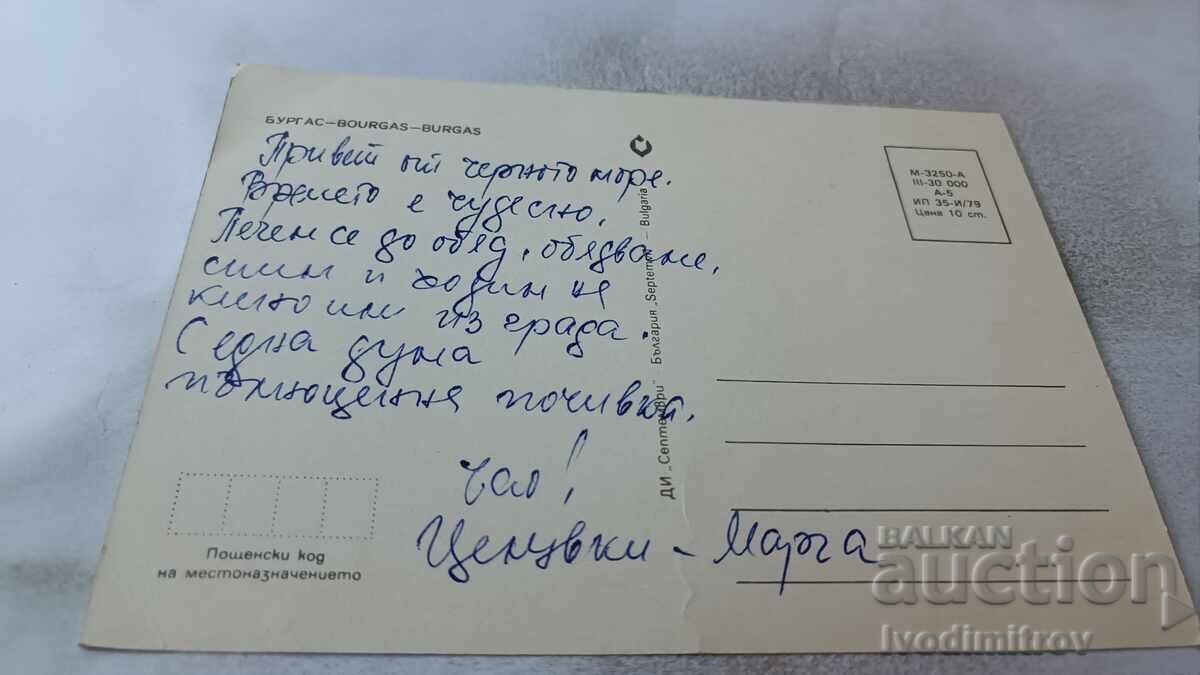 БУРГАС—BOURGAS—BURGAS
Привет от черното море.
Времето е чудесно.
Печем се до обяд, обядваме,
спим и ходим на
кино или из града.
С една дума
пълноценна почивка.
Чао!
Ценцвки - Марга
Пощенски код
на местоназначението
ДИ „Септември" — България „Septemvri" — Bulgaria
М-3250-А
III-30 000
А-5
ИП 35-И/79
Цена 10 ст.
BALKAN
auction
Ivodimitrov